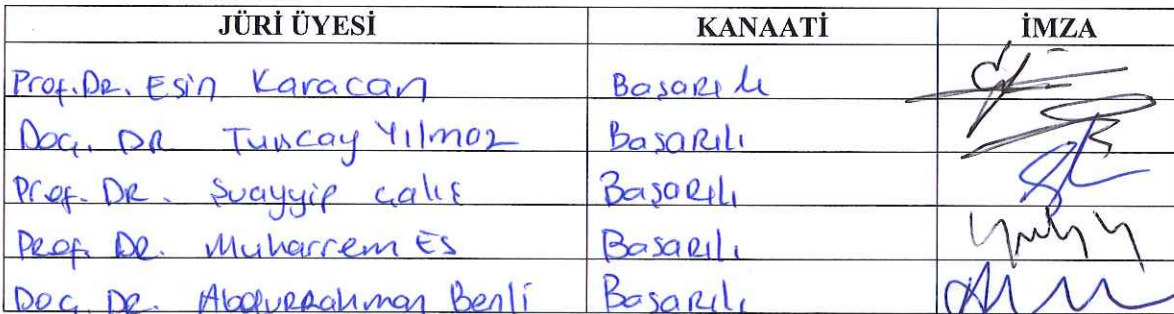 JÜRİ ÜYESİ KANAATİ İMZA
Prof. Dr. Esin Karacan Başarılı
Doç. DR Tuncay Yılmaz Başarılı
Prof. DR. Şuayyip Çalış Başarılı
Prof. DR. Muharrem Es Başarılı
Doç. DR. Abdurrahman Benli Başarılı